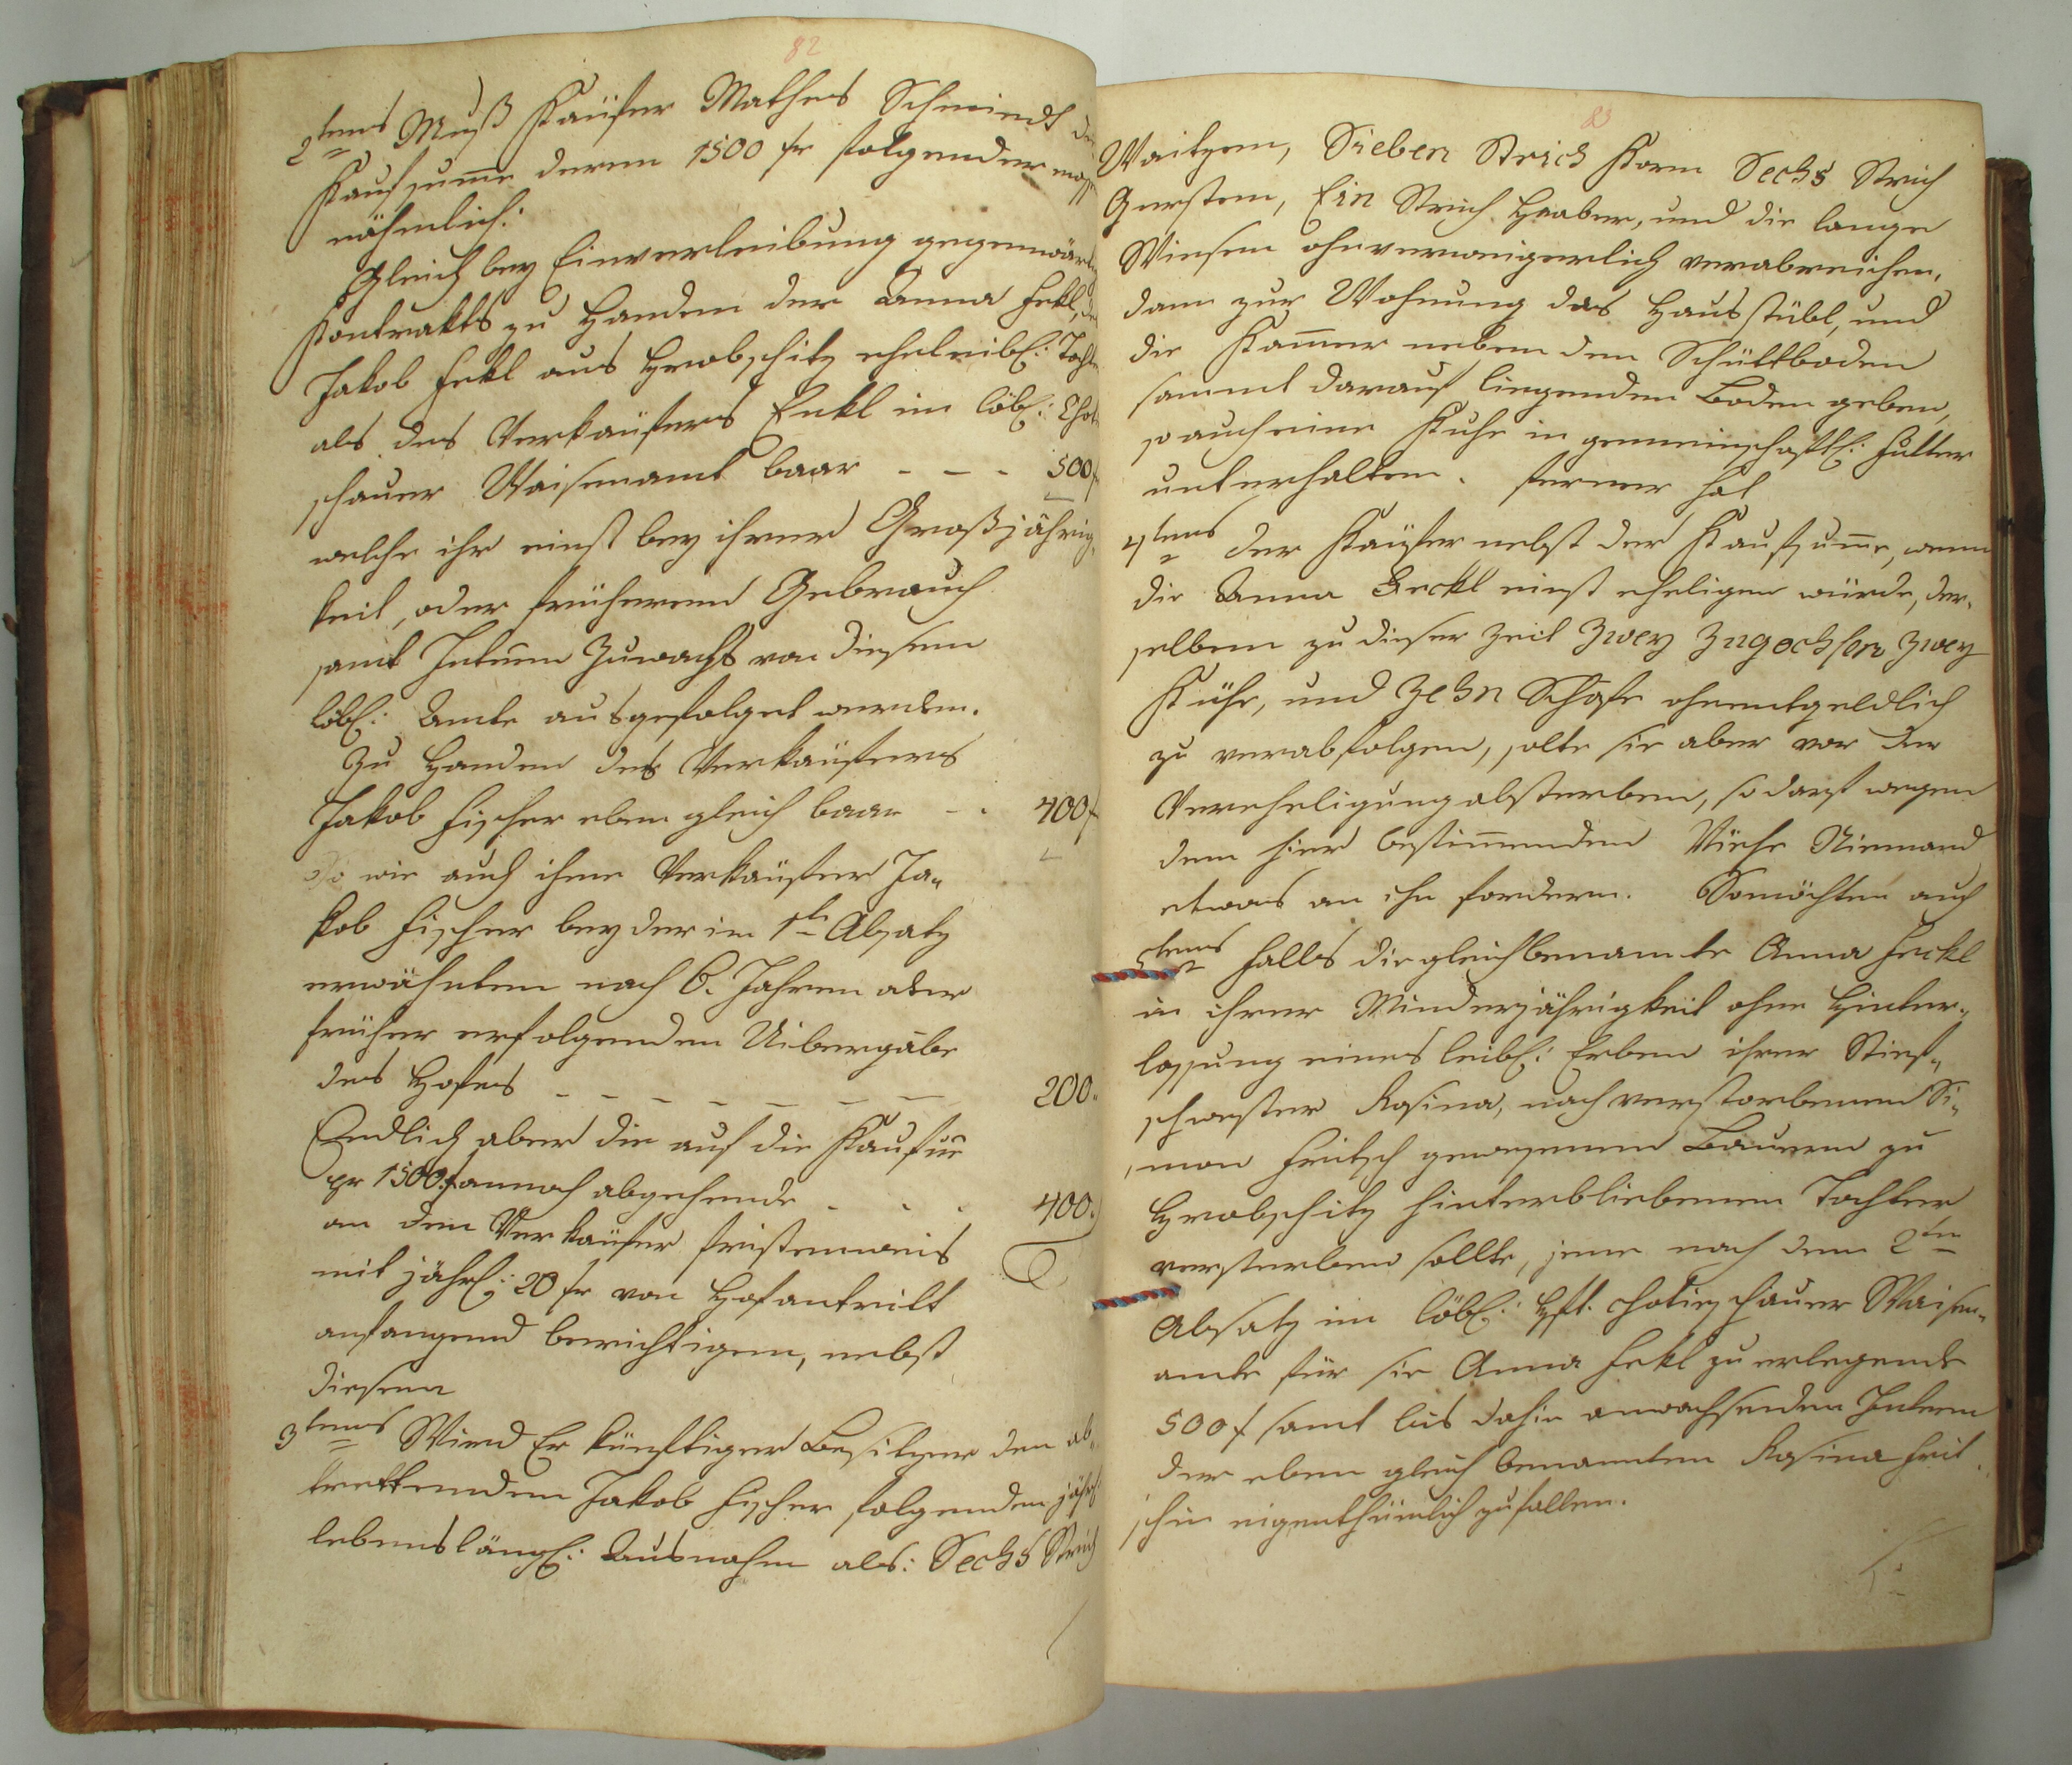 82
2tens Muß Kaüfer Mathes Schmiedt
Kaufsume deren 1500 fr folgender
nähmlich:
Gleich bey Einverleibung gegenwärti
Kontrakts zu Handen der Anna Fekl,
Jakob Fekl aus Hrobschitz eheleibl: Tocht
als des Verkaüfers Enkl im löbl: Choti
schauer Waisenamt baar - - - 500 f
welche ihr einst bey ihrer Großjährig,
keit, oder früheren Gebrauch
samt Intressen Zuwachs von diesem
löbl: Amte ausgefolget werden.
Zu Handen des Verkaüfers
Jakob Fischer eben gleich baar - - 400 f
So wie auch ihme Verkaüfer Ja„
kob Fischer bey der im 1ten Absatz
erwähnten nach 6. Jahren oder
früher erfolgenden Uibergabe
des Hofes - - - - - - - 200„
Endlich aber die auf die Kaufsume
pr 1500 f annoch abgehende - - - 400„
an dem Verkaüfer fristenweis
mit jährl: 20 fr von Hofantritt
anfangend berichtigen, nebst
diesem
3tens Wird Er künftiger Besitzer dem ab„
trettenden Jakob Fischer folgenden jährl
lebenslängl: Ausnahm als: Sechs Strich
83
Waitzen, Sieben Strich Korn Sechs Strich
Gersten, Ein Strich Haaber, und die lange
Wiesen ohnverweigerlich verabreichen,
dann zur Wohnung das Hausstübl, und
die Kammer neben dem Schüttboden
sammt darauf liegenden Boden geben,
so auch eine Kuhe in gemeinschaftl: Futter
unterhalten. Ferner hat
4tens der Kaüfer nebst der Kaufsume, wenn
die Anna Feckl einst eheligen würde, der„
selben zu dieser Zeit Zwey Zugochsen Zwey
Kühe, und Zehn Schafe ohnentgeldlich
zu verabfolgen, solte sie aber vor der
Vereheligung absterben, so darf wegen
dem hier bestimmenden Viehe Niemand
etwas an ihn fordern. So möchten auch
5tens Falls die gleichbenamte Anna Feckl
in ihrer Minderjährigkeit ohne Hinter„
lassung eines leibl: Erben ihrer Stief„
schwester Rosina, nach verstorbenen Si„
mon Fritsch gewesenen Bauern zu
Hrobschitz hinterbliebenen Tochter
versterben sollte, jene nach dem 2ten
Absatz im löbl: Hft. Chotieschauer Waisen„
amte für sie Anna Fekl zu erlegende
500 f samt bis dahin anwachsenden Intressen
der eben gleich benannten Rosina Frit„
schin eigenthümlich zufallen.